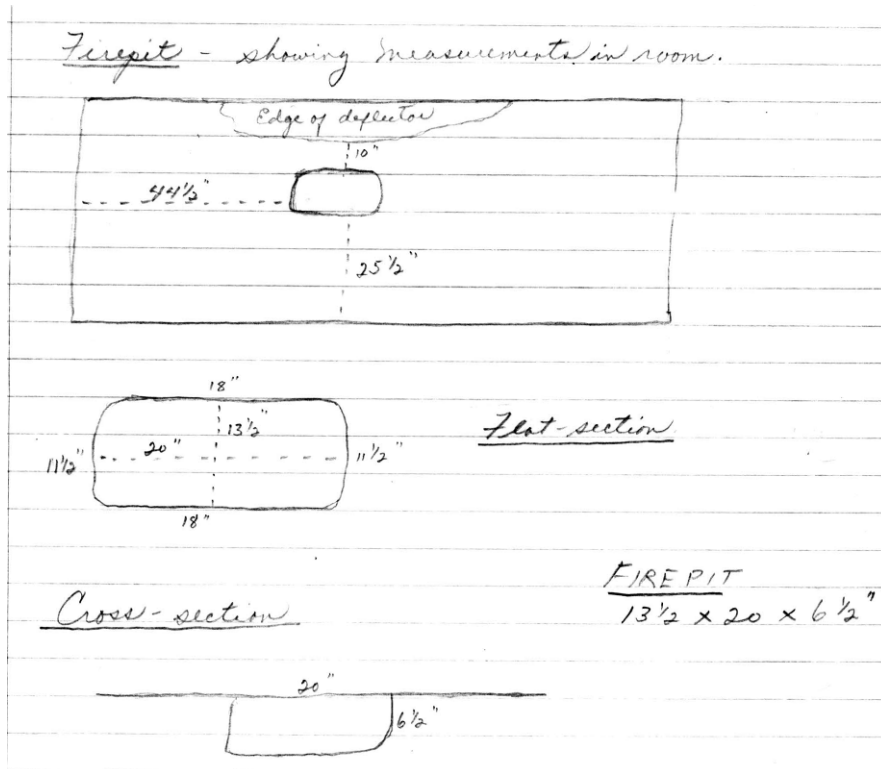 Firepit - showing measurements in room.
Edge of deflector
10"
44½"
25½"
18"
13½"
20"
11½"
11½"
18"
Flat-section
FIREPIT
13½ x 20 x 6½"
Cross-section
20"
6½"